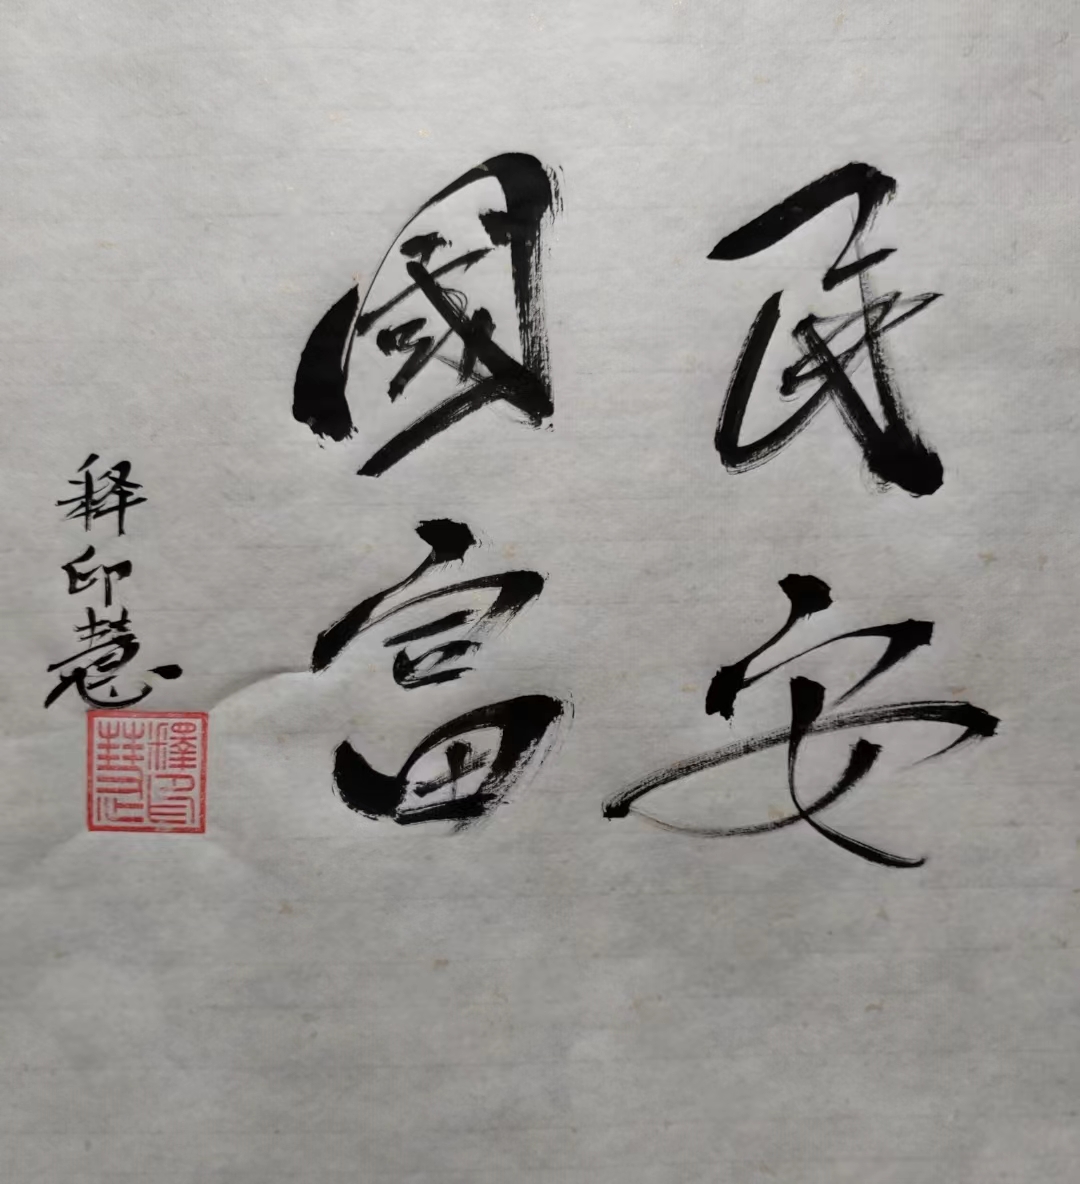 民安
國富
释印慧
釋印慧